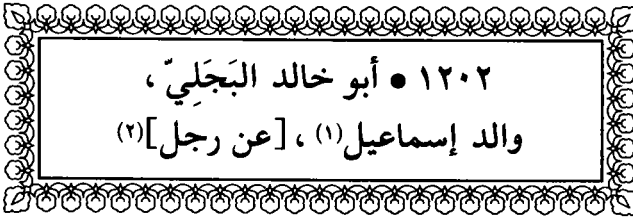 ١٢٠٢ • أبو خالد البَجَلِيّ،
والد إسماعيل(١)، [عن رجل](٢)